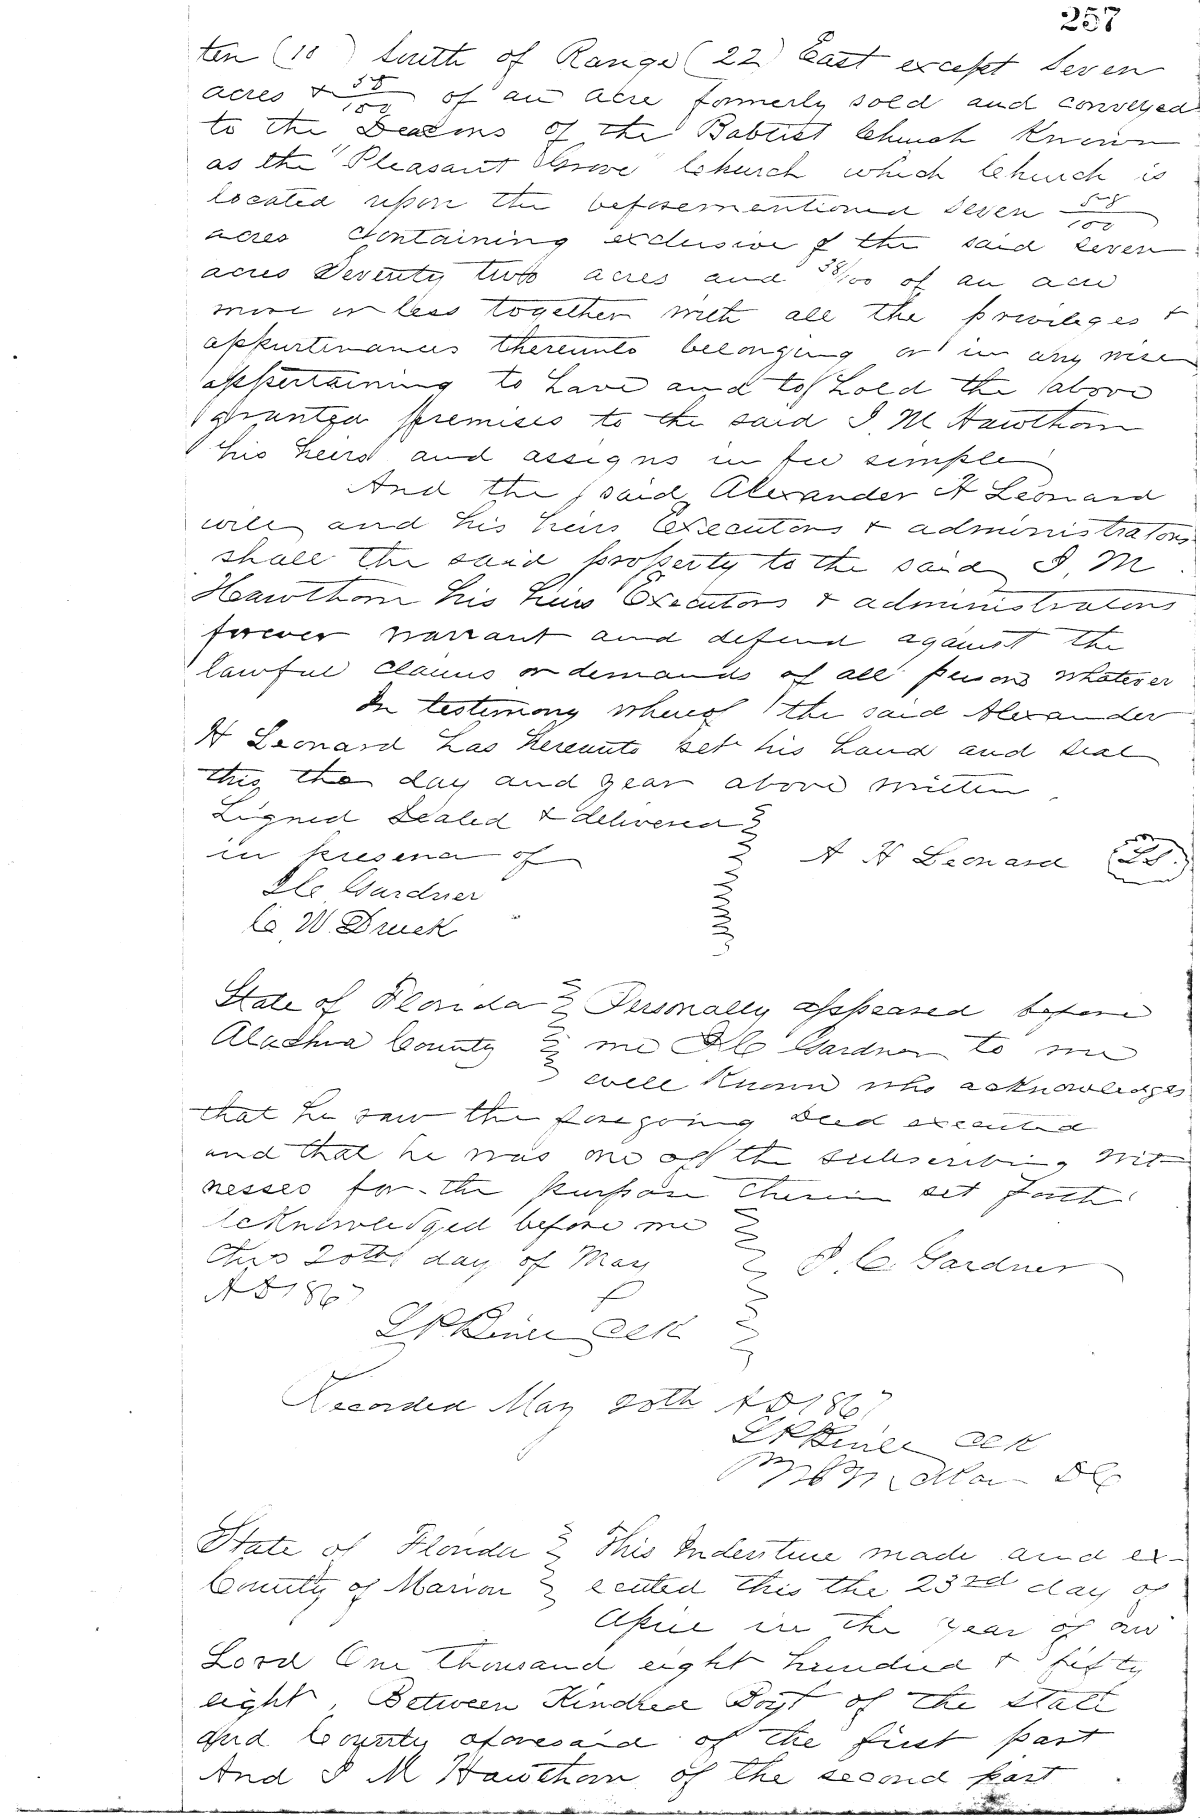 257
ten (10) South of Range (22) East except Seven
acres & 58/100 of an acre formerly sold and conveyed
to the Deacons of the Babtist Church Known
as the "Pleasant Grove" Church which Church is
located upon the beforementioned Seven 58/100
acres Containing exclusive of the said Seven
acres Seventy two acres and 38/100 of an acre
more or less together with all the privileges &
appurtinances thereunto belonging or in any wise
appertaining to have and to hold the above
granted premises to the said J. M Hawthorn
his heirs and assigns in fee simple
And the said Alexander H Leonard
will and his heirs Executors & administrators
shall the said property to the said J. M.
Hawthorn his heirs Executors & administrators
forever warrant and defend against the
lawful claims or demands of all persons whatever
In testimony whereof the said Alexander
H Leonard has hereunto set his hand and seal
this the day and year above written
Signed Sealed & delivered
in presence of
A H Leonard LS.
J C Gardner
C. W. Druck
State of Florida Personally appeared before
Alachua County me J C Gardner to me
well Known who acknowledges
that he saw the foregoing Deed executed
and that he was one of the subscribing wit
nesses for the purpose therein set forth
Acknowledged before me
this 20th day of May J. C. Gardner
A D 1867
Clk
Recorded May 20th A D 1867
Clk
D C
State of Florida This Indenture made and ex-
County of Marion ecuted this the 23rd day of
April in the year of our
Lord One thousand eight hundred & fifty
eight, Between Kindred Boyt of the State
and County aforesaid of the first part
And J M Hawthorn of the second part